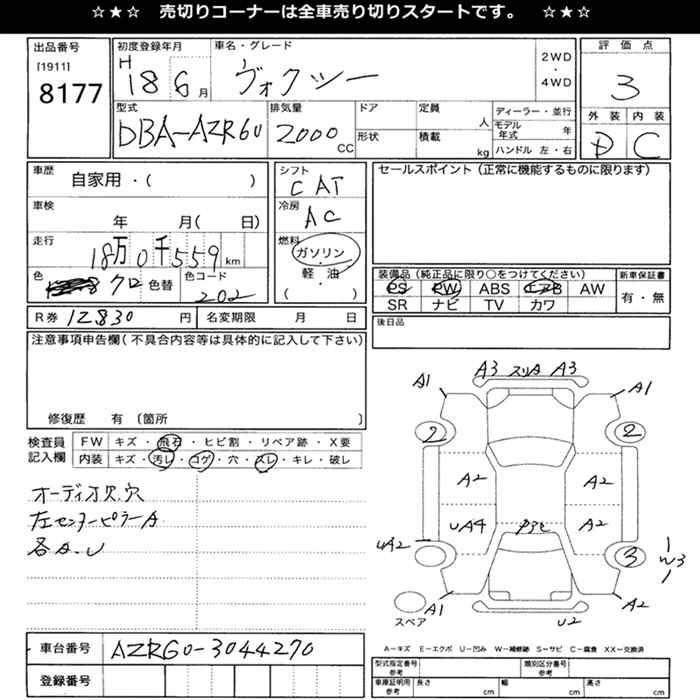 ☆★☆ 売切りコーナーは全車売り切りスタートです。 ☆★☆
出品番号
[1911]
8177
初度登録年月
H 18 6 月
車名・グレード
ヴォクシー
2WD
・
4WD
評価点
3
外装 内装
D C
型式
DBA-AZR60
排気量
2000 CC
ドア
形状
定員 人
積載 kg
ディーラー・並行
モデル年式 年
ハンドル 左・右
車歴
自家用・( )
車検
年 月( 日)
走行
18万0千559 km
色
クロ
色替
色コード
202
シフト
C AT
冷房
AC
燃料
ガソリン
・
軽・油
( )
セールスポイント(正常に機能するものに限ります)
装備品(純正品に限り○をつけてください)
PS PW ABS エアB AW
SR ナビ TV カワ
新車保証書
有・無
R券 12830 円
名変期限 月 日
後日品
注意事項申告欄(不具合内容等は具体的に記入して下さい)
修復歴 有 〔箇所 〕
検査員
記入欄
FW キズ・飛石・ヒビ割・リペア跡・X要
内装 キズ・汚レ・コゲ・穴・スレ・キレ・破レ
オーディオ欠.穴
左センターピラーA
各A.U
A3 スリA A3
A1 A1
2 2
A2 A2
UA4 A2
UA2
3
W3
A1 A2
U2
スペア
A−キズ E−エクボ U−凹み W−補修跡 S−サビ C−腐食 XX−交換済
車台番号 AZR60-3044270
登録番号
型式指定番号
参考
類別区分番号
参考
車庫証明用
参考
長さ cm 幅 cm 高さ cm